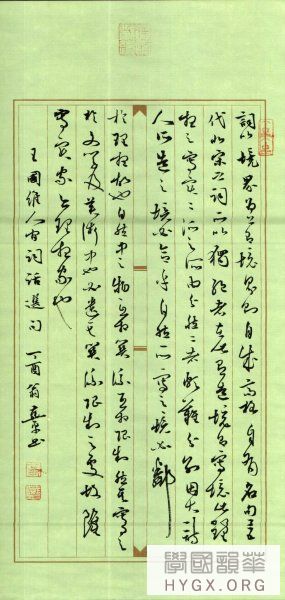 詞以境界为上有境界則自成高格自有名句五
代北宋之詞所以獨絕者在此有造境有寫境此理
想之寫實二派之所由分然二者頗難分別因大詩
人所造之境必合乎自然所寫之境必鄰
於理想故也自然中之物互相關係互相限制然其寫之
於文學及美術中也必遺其關係限制之處故雖
寫實家亦理想家也
王國維人間詞話選句 丁酉翁書
學國韻華
HYGX.ORG